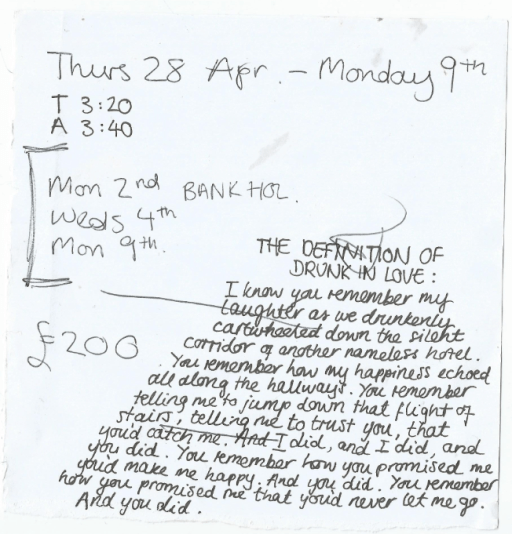 Thurs 28 Apr. – Monday 9th
T 3:20
A 3:40
Mon 2nd BANK HOL.
Weds 4th
Mon 9th.
£200
THE DEFINITION OF
DRUNK IN LOVE:
I know you remember my
laughter as we drunkenly
cartwheeled down the silent
corridor of another nameless hotel.
You remember how my happiness echoed
all along the hallways. You remember
telling me to jump down that flight of
stairs, telling me to trust you, that
you'd catch me. And I did, and I did, and
you did. You remember how you promised me
you'd make me happy. And you did. You remember
how you promised me that you'd never let me go.
And you did.